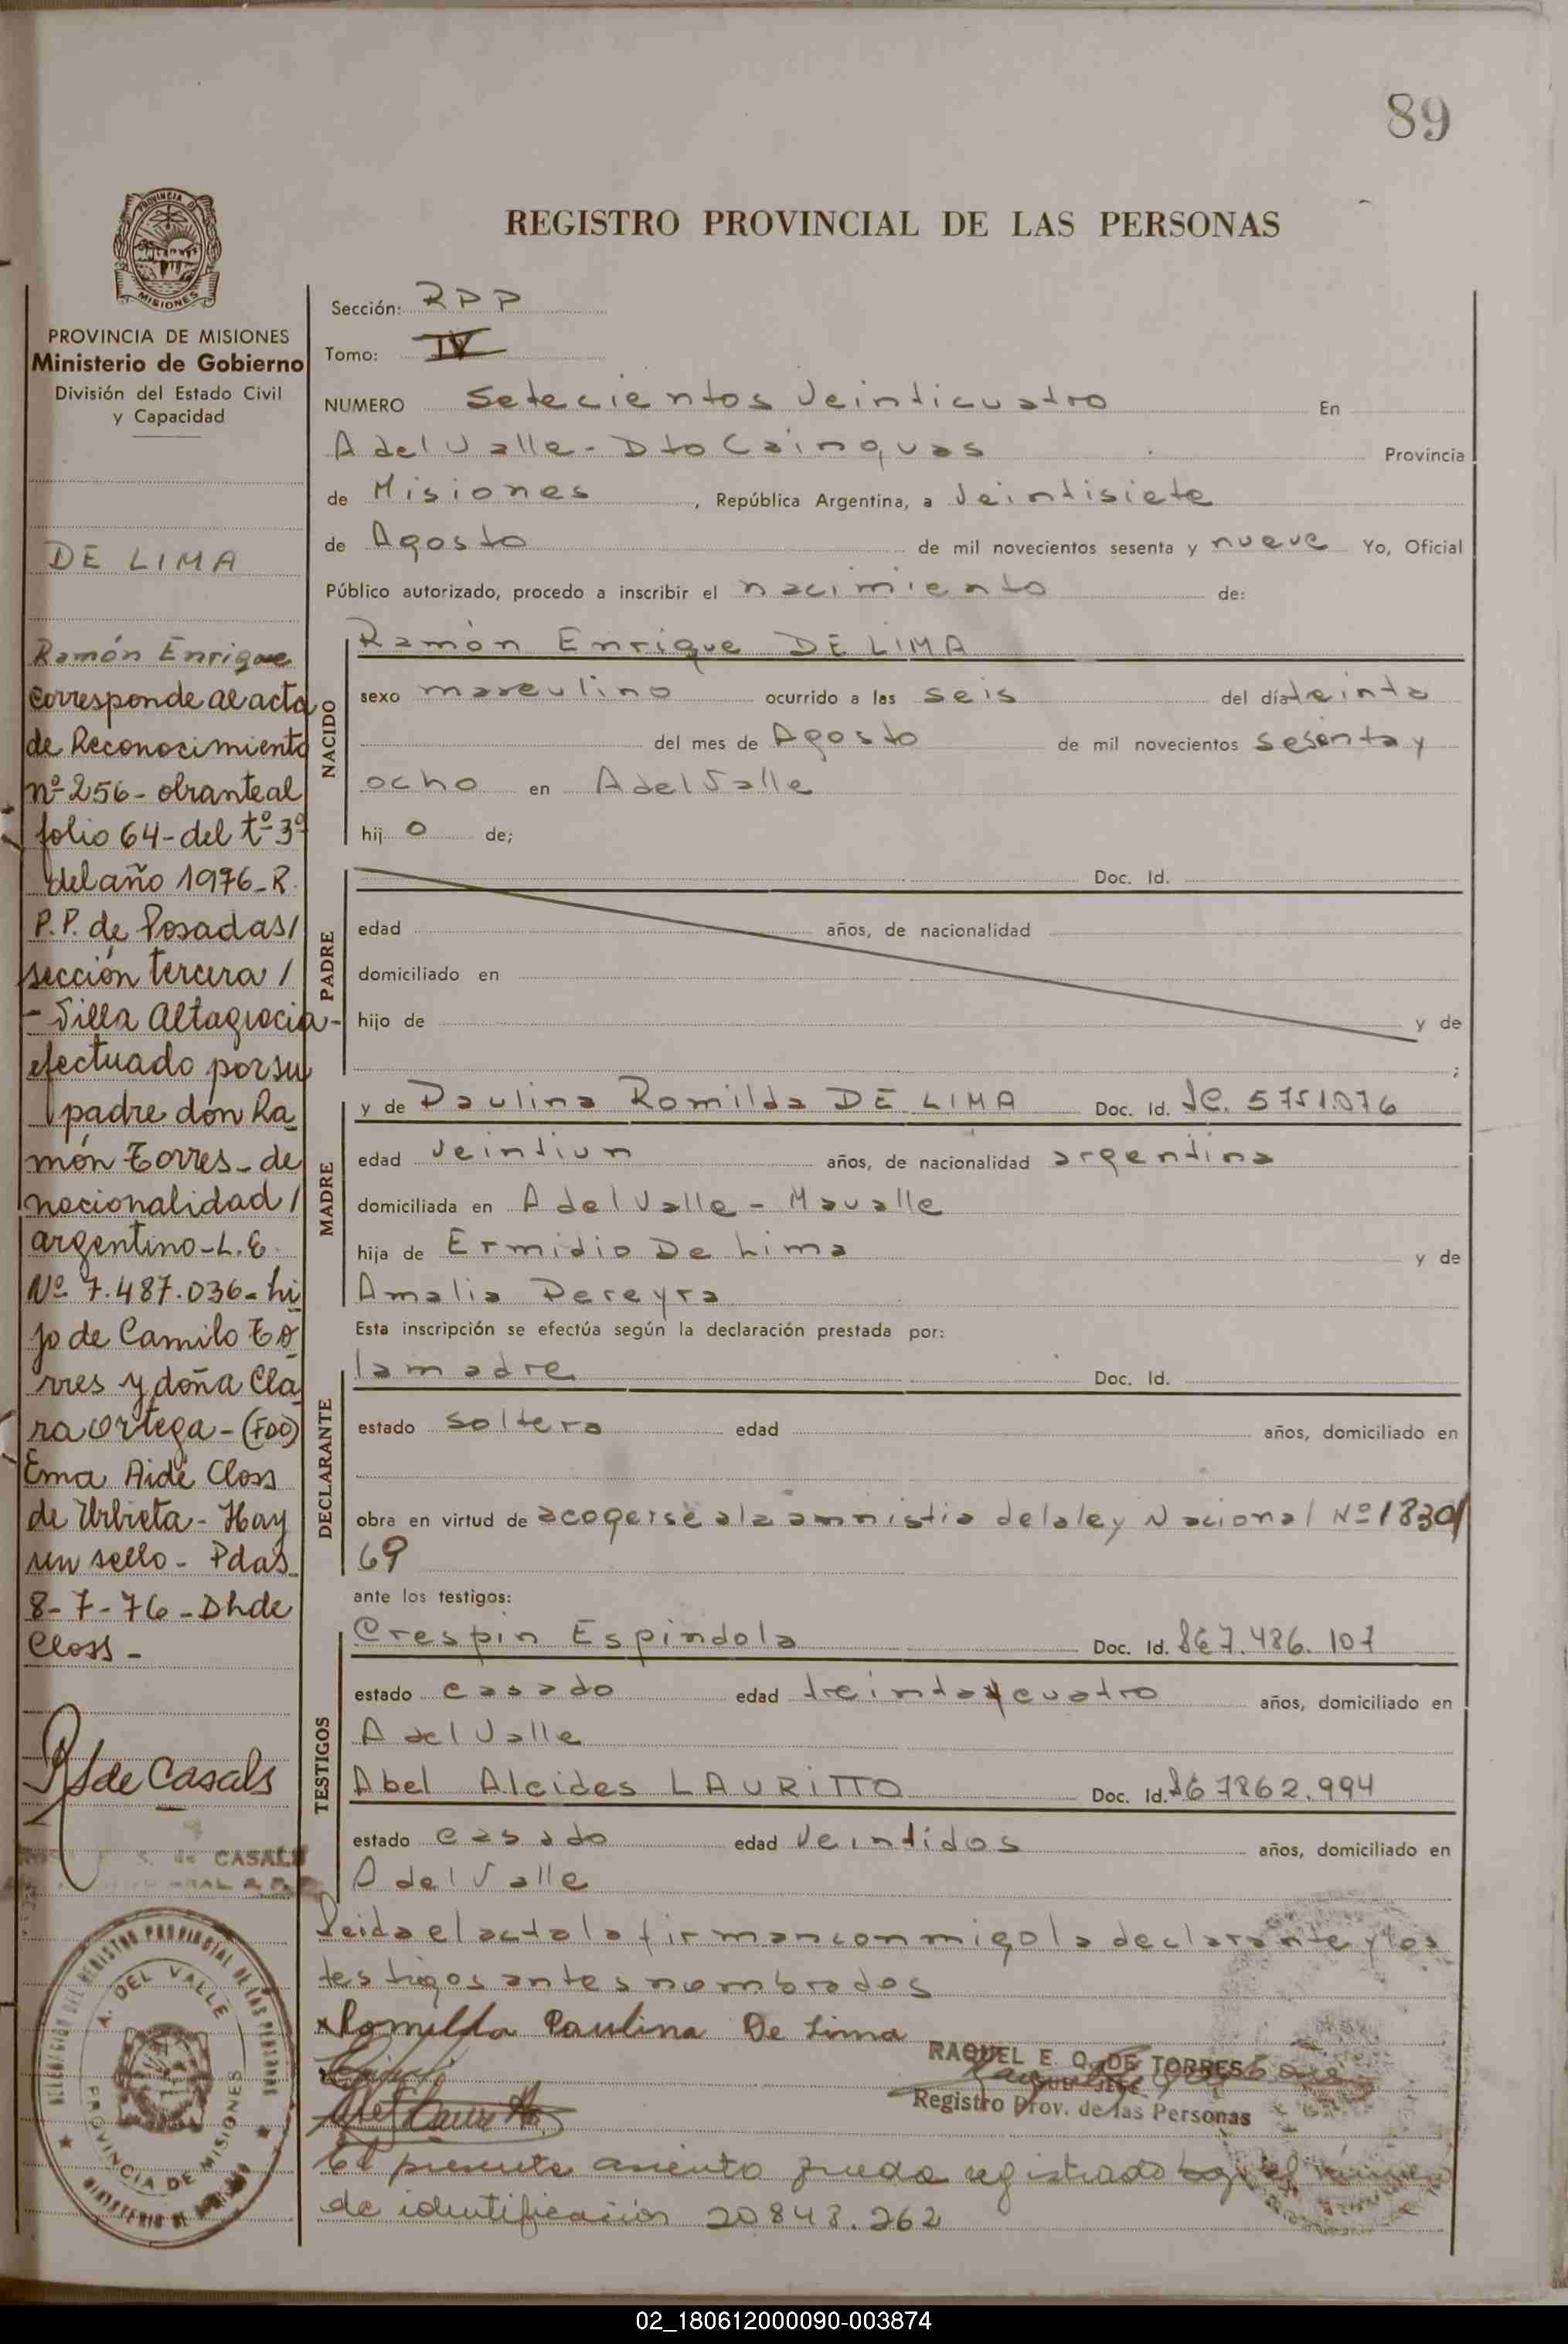 89
REGISTRO PROVINCIAL DE LAS PERSONAS
PROVINCIA DE MISIONES
Ministerio de Gobierno
División del Estado Civil
y Capacidad
DE LIMA
Ramón Enrique
corresponde al acta
de Reconocimiento
nº 256- obrante al
folio 64-del tº 3º
del año 1976-R.
P.P. de Posadas/
sección tercera/
- Villa Altagracia-
efectuado por su
padre don Ra
món Torres- de
nacionalidad/
argentino-L.E.
Nº 7.487.036- hi
jo de Camilo To
rres y doña Cla
ra Ortega-(FDO)
Ema Aidé Closs
de Urbieta- Hay
un sello- Pdas
8-7-76-Dhde
Closs-
de Casals
S. de CASALS
DELEGACION DEL REGISTRO PROVINCIAL DE LAS PERSONAS
A. DEL VALLE
PROVINCIA DE MISIONES
MINISTERIO DE
Sección: RPP
Tomo: IV
NUMERO Setecientos Veinticuatro En
A del Valle - Dto Cainguas Provincia
de Misiones, República Argentina, a Veintisiete
de Agosto de mil novecientos sesenta y nueve Yo, Oficial
Público autorizado, procedo a inscribir el nacimiento de:
NACIDO
Ramón Enrique DE LIMA
sexo masculino ocurrido a las seis del día treinta
del mes de Agosto de mil novecientos sesenta y
ocho en A del Valle
hij o de;
PADRE
Doc. Id.
edad años, de nacionalidad
domiciliado en
hijo de y de
;
MADRE
y de Paulina Romilda DE LIMA Doc. Id. 5751.076
edad Veintiun años, de nacionalidad argentina
domiciliada en A del Valle - Mavalle
hija de Ermidio De Lima y de
Amalia Pereyra
Esta inscripción se efectúa según la declaración prestada por:
DECLARANTE
la madre Doc. Id.
estado soltera edad años, domiciliado en
obra en virtud de acogerse a la amnistia de la ley Nacional Nº 1830/
69
ante los testigos:
TESTIGOS
Crespin Espindola Doc. Id. 7.486.107
estado casado edad treinta y cuatro años, domiciliado en
A del Valle
Abel Alcides LAURITTO Doc. Id. 7862.994
estado casado edad Veintidos años, domiciliado en
A del Valle
Leida el acta la firman conmigo la declarante y los
testigos antes nombrados
x Romilda Paulina De Lima
RAQUEL E. O. DE TORRES
Registro Prov. de las Personas
El presente asiento queda registrado bajo el número
de identificación 20843.262
02_180612000090-003874